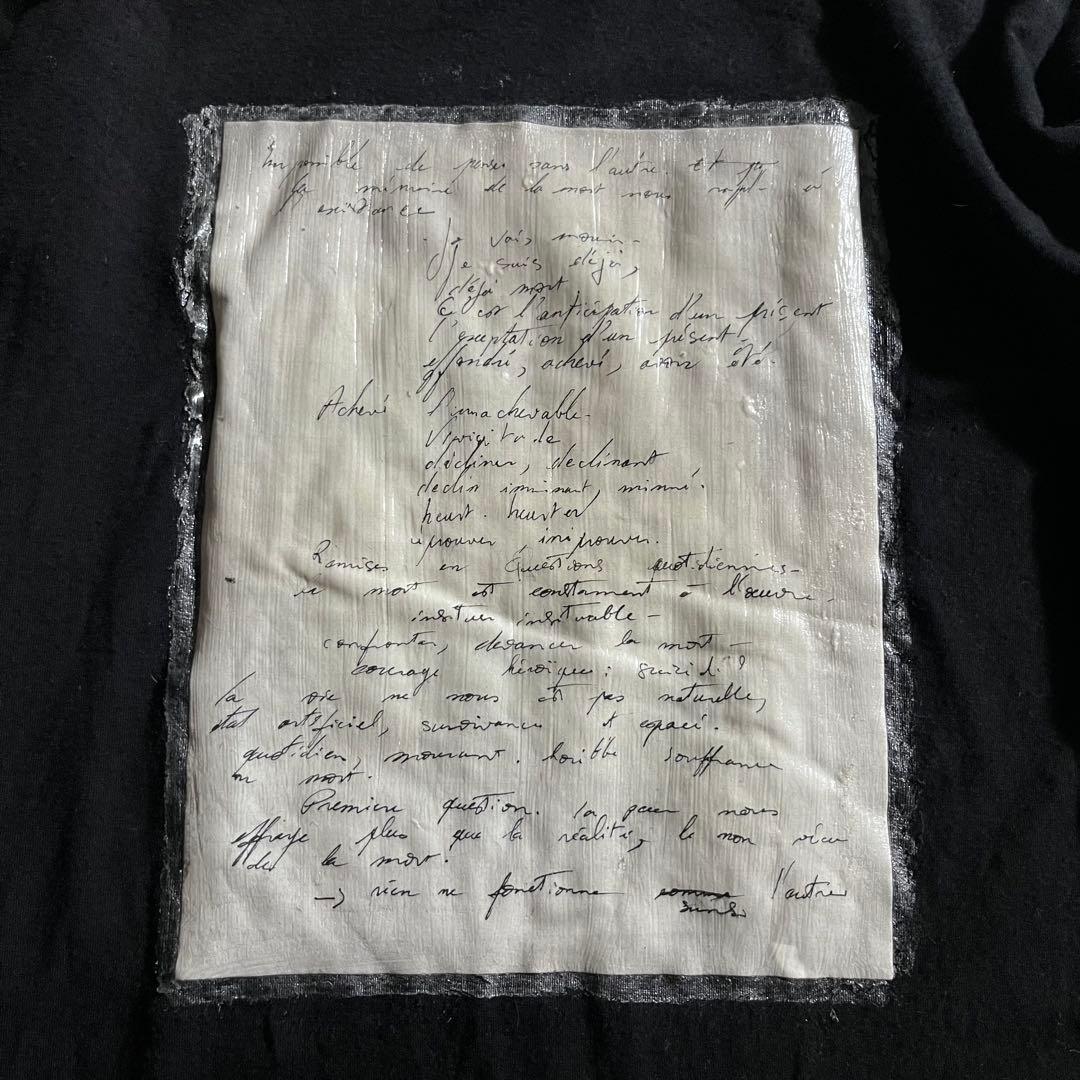 Impossible de penser sans l'autre. Et
la mémoire de la mort nous
existance
Je vais mourir-
Je suis déjà,
déjà mort
C'est l'anticipation d'un présent
l'exceptation d'un présent
effondré, achevé, avoir été.
Achevé l'inachevable-
décliner, declinant
declin imminant, miné.
heurt. heurter
éprouver, inéprouver.
Remises en Questions quotidiennes-
la mort est constament à l'œuvre.
insituer insituable-
confronter, devancer la mort-
courage héroïque:
la vie ne nous est pas naturelle,
état artificiel, survivance et
quotidien, mourant. horible souffrance
mort.
Premiere question. la peur nous
effraye plus que la réalité, le non vécu
de la mort.
-> rien ne fonctionne sans l'autre